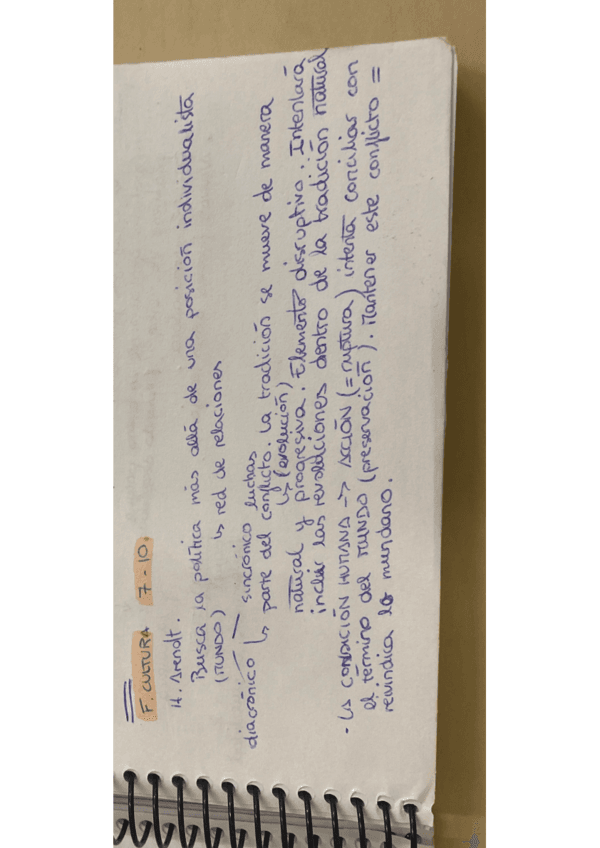 F. CULTURA 7-10.
H. Arendt.
Busca la política más allá de una posición individualista
(MUNDO) ↳ red de relaciones
diacrónico — sincrónico luchas
↳ parte del conflicto. La tradición se mueve de manera
↳ (evolución)
natural y progresiva. Elemento disruptivo. Intentará
incluir las revoluciones dentro de la tradición natural
- LA CONDICIÓN HUMANA -> ACCIÓN (= ruptura) intenta conciliar con
el término del MUNDO (preservación). Mantener este conflicto =
reivindica lo mundano.